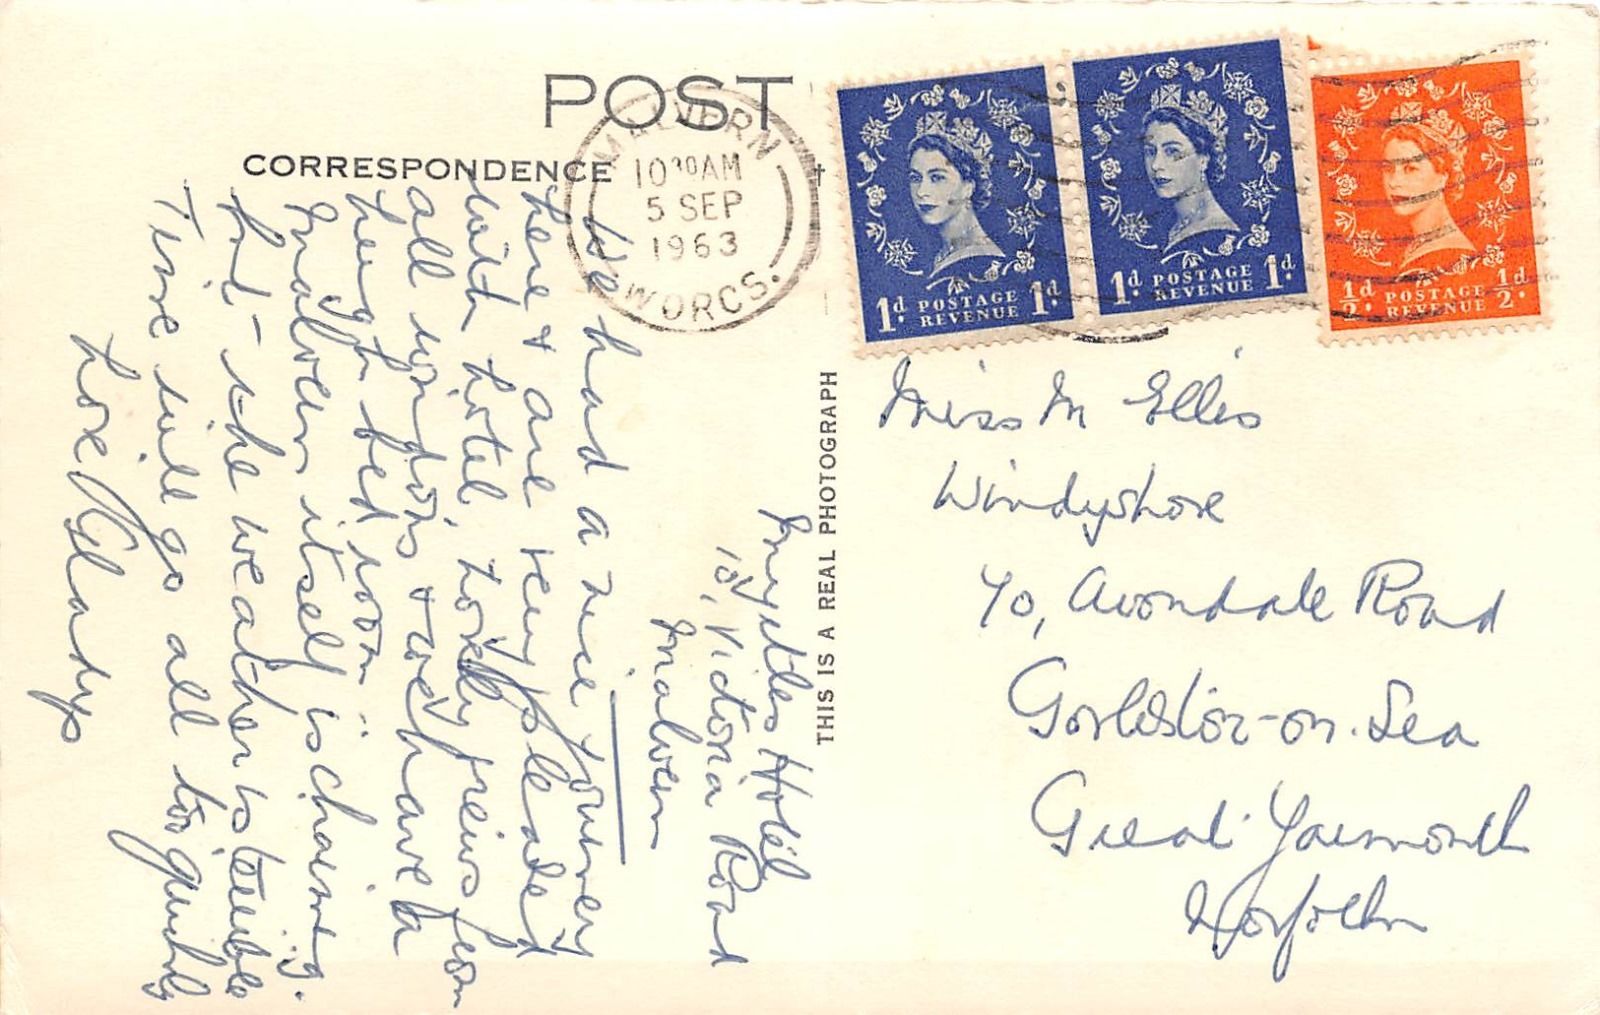 POST
CORRESPONDENCE
MALVERN
10 30 AM
5 SEP
1963
WORCS.
1d POSTAGE REVENUE 1d
1d POSTAGE REVENUE 1d
½d POSTAGE REVENUE ½d
THIS IS A REAL PHOTOGRAPH
Hotel
10, Victoria Road
Malvern
We had a nice journey
here & are very pleased
with hotel, lovely views from
all windows & we have a
huge bed room
Malvern itself is charming.
but - the weather is terrible
Time will go all too quickly
Love Gladys
Miss M Ellis
Windyshore
40, Avondale Road
Gorleston-on-Sea
Great Yarmouth
Norfolk